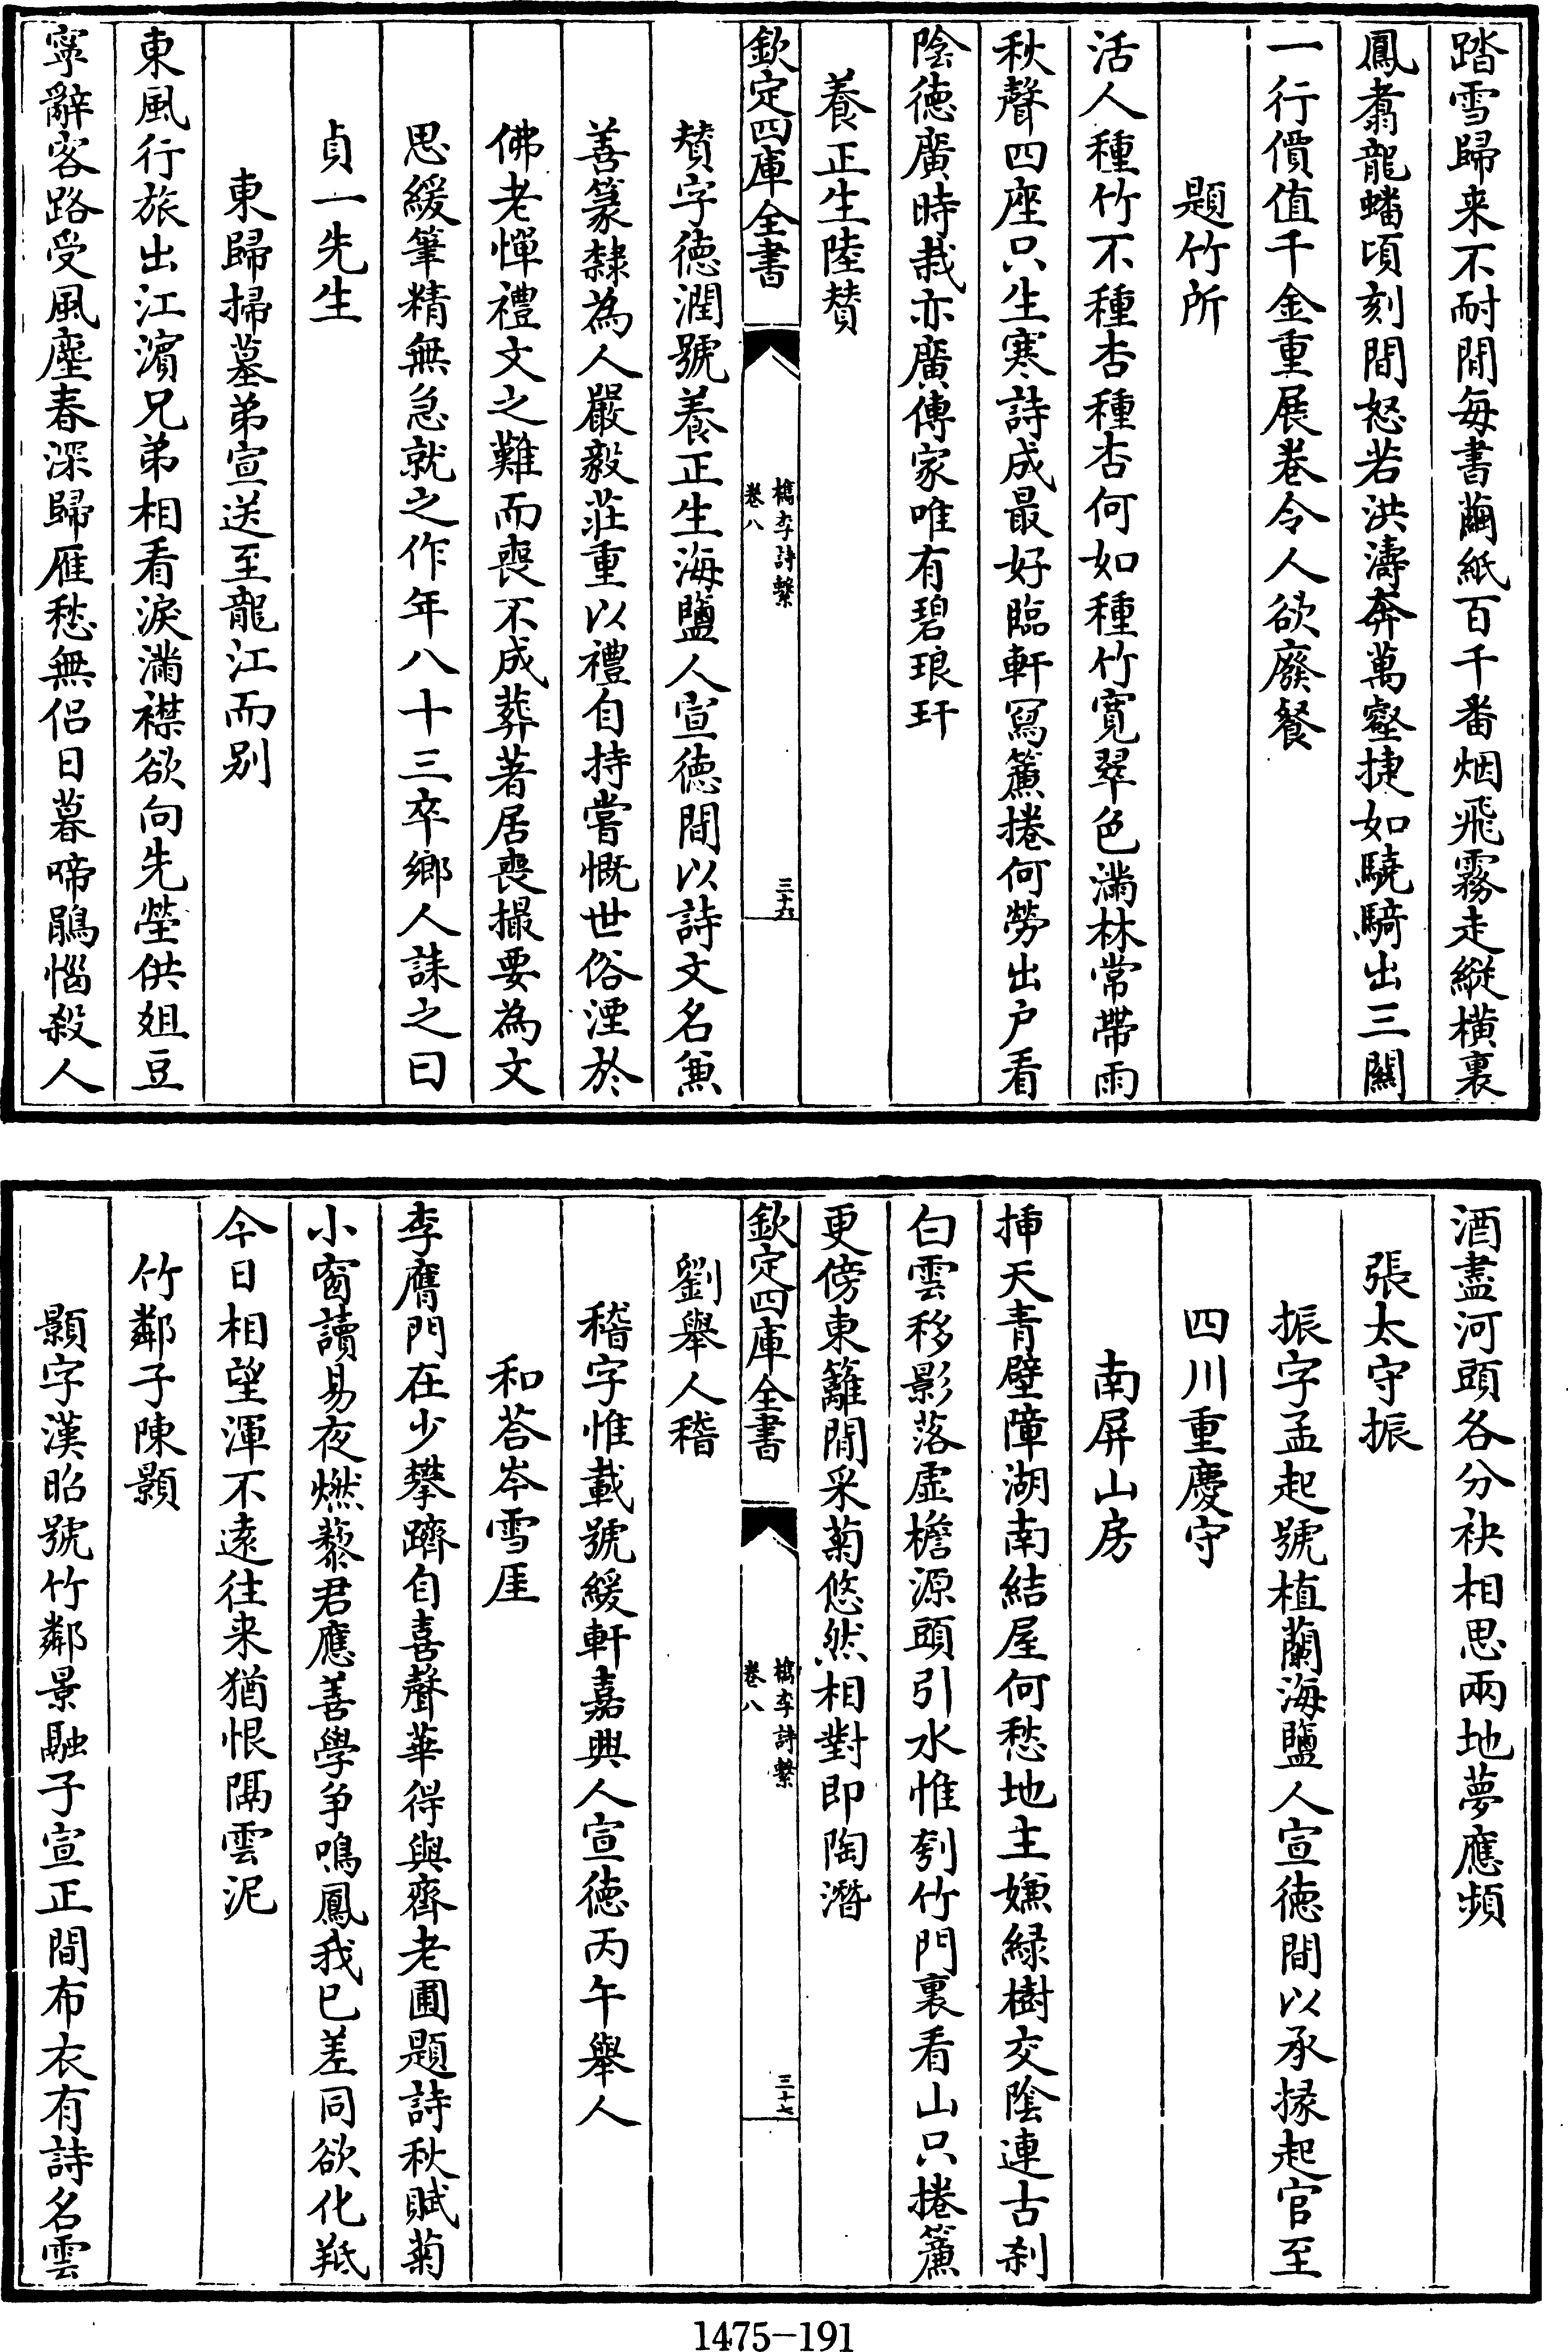 踏雪歸来不耐閒每書繭紙百千番烟飛霧走縱橫裏
鳳翥龍蟠頃刻間怒若洪濤奔萬壑捷如驍騎出三關
一行價值千金重展卷令人欲廢餐
題竹所
活人種竹不種杏種杏何如種竹寛翠色滿林常帶雨
秋聲四座只生寒詩成最好臨軒寫簾捲何勞出户看
陰徳廣時栽亦廣傳家唯有碧琅玕
養正生陸賛
欽定四庫全書
檇李詩繫
卷八
三十六
賛字徳潤號養正生海鹽人宣徳間以詩文名兼
善篆隸為人嚴毅莊重以禮自持嘗慨世俗湮於
佛老憚禮文之難而喪不成葬著居喪撮要為文
思緩筆精無急就之作年八十三卒鄉人誄之曰
貞一先生
東歸掃墓弟宣送至龍江而别
東風行旅出江濵兄弟相看淚滿襟欲向先塋供俎豆
寧辭客路受風塵春深歸雁愁無侶日暮啼鵑惱殺人
酒盡河頭各分袂相思兩地夢應頻
張太守振
振字孟起號植蘭海鹽人宣徳間以承掾起官至
四川重慶守
南屏山房
挿天青壁障湖南結屋何愁地主嫌緑樹交陰連古刹
白雲移影落虚檐源頭引水惟刳竹門裏看山只捲簾
更傍東籬閒采菊悠然相對即陶潛
欽定四庫全書
檇李詩繫
卷八
三十七
劉舉人稽
稽字惟載號緩軒嘉興人宣徳丙午舉人
和荅岑雪厓
李膺門在少攀躋自喜聲華得與齊老圃題詩秋賦菊
小窗讀易夜燃藜君應善學争鳴鳳我已差同欲化羝
今日相望渾不遠往来猶恨隔雲泥
竹鄰子陳顥
顥字漢昭號竹鄰景融子宣正間布衣有詩名雲
1475-191